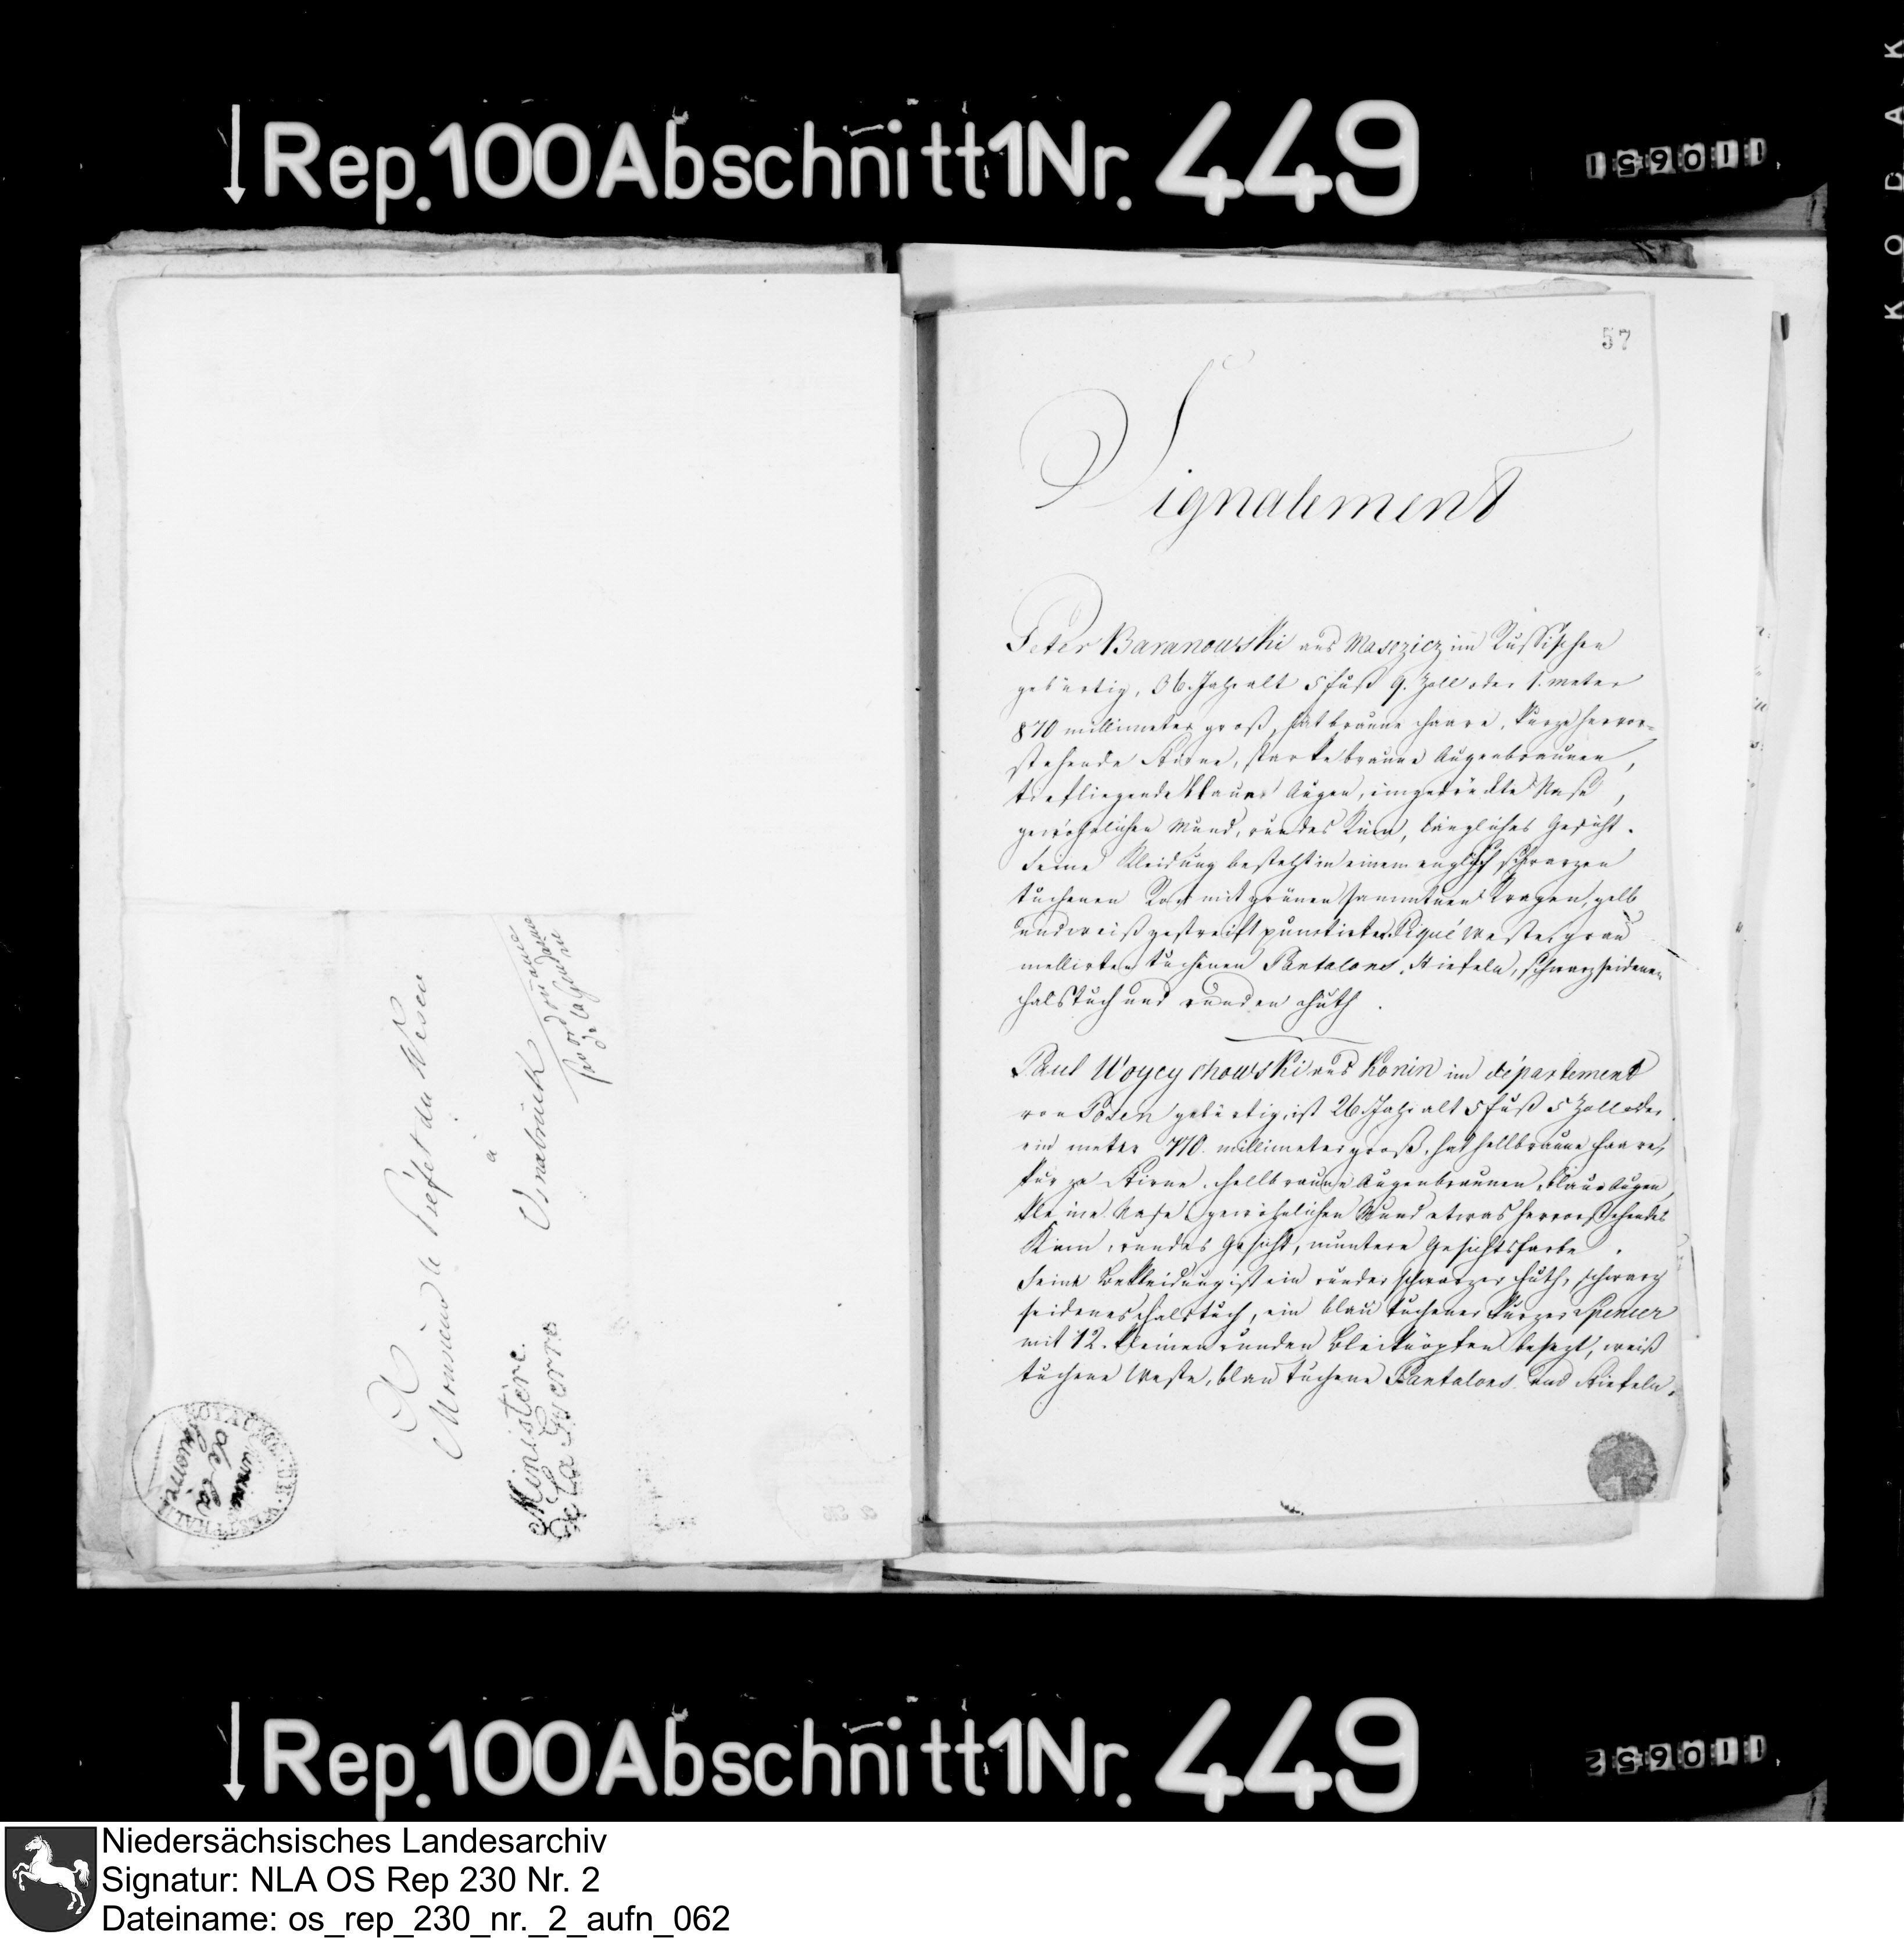 Rep. 100 Abschnitt 1 Nr. 449
110651
KODAK
A
Monsieur le Préfet du Weser
à
Osnabrück
Ministère
de la Guerre
57
Signalement
Peter Baranowski aus Masczicz im Russischen
gebürtig, 36. Jahr alt 5 fuß 9. Zoll oder 1. meter
870 millimeter groß, hat braune Haare, kurze hervor-
stehende Stirne, starke braune Augenbraunen,
tiefliegende blaue Augen, eingedrückte Nase,
gewöhnlichen Mund, rundes Kinn, längliches Gesicht.
Seine Kleidung besteht in einem englisch schwarzen
tuchenen Rock mit grünen sammtnen Kragen, gelb
und weiß gestreift punctirter Piqué Weste, grau
mellirten tuchenen Pantalons, Stiefeln, schwarz seidenen
Halstuch und runden Huth.
Paul Woycychowski aus Konin im département
von Posen gebürtig, ist 26 Jahr alt 5 fuß 5 Zoll oder
ein meter 770. millimeter groß, hat hellbraune Haare,
kurze Stirne, hellbraune Augenbraunen, blaue Augen,
kleine Nase, gewöhnlichen Mund etwas hervorstehendes
Kinn, rundes Gesicht, muntere Gesichtsfarbe.
Seine Bekleidung ist ein runder schwarzer Huth, schwarz
seidenes Halstuch, ein blau tuchener kurzer Spencer
mit 12. kleinen runden Bleiknöpfen besezt, weiß
tuchene Weste, blau tuchene Pantalons und Stiefeln.
Rep. 100 Abschnitt 1 Nr. 449
110652
Niedersächsisches Landesarchiv
Signatur: NLA OS Rep 230 Nr. 2
Dateiname: os_rep_230_nr._2_aufn_062